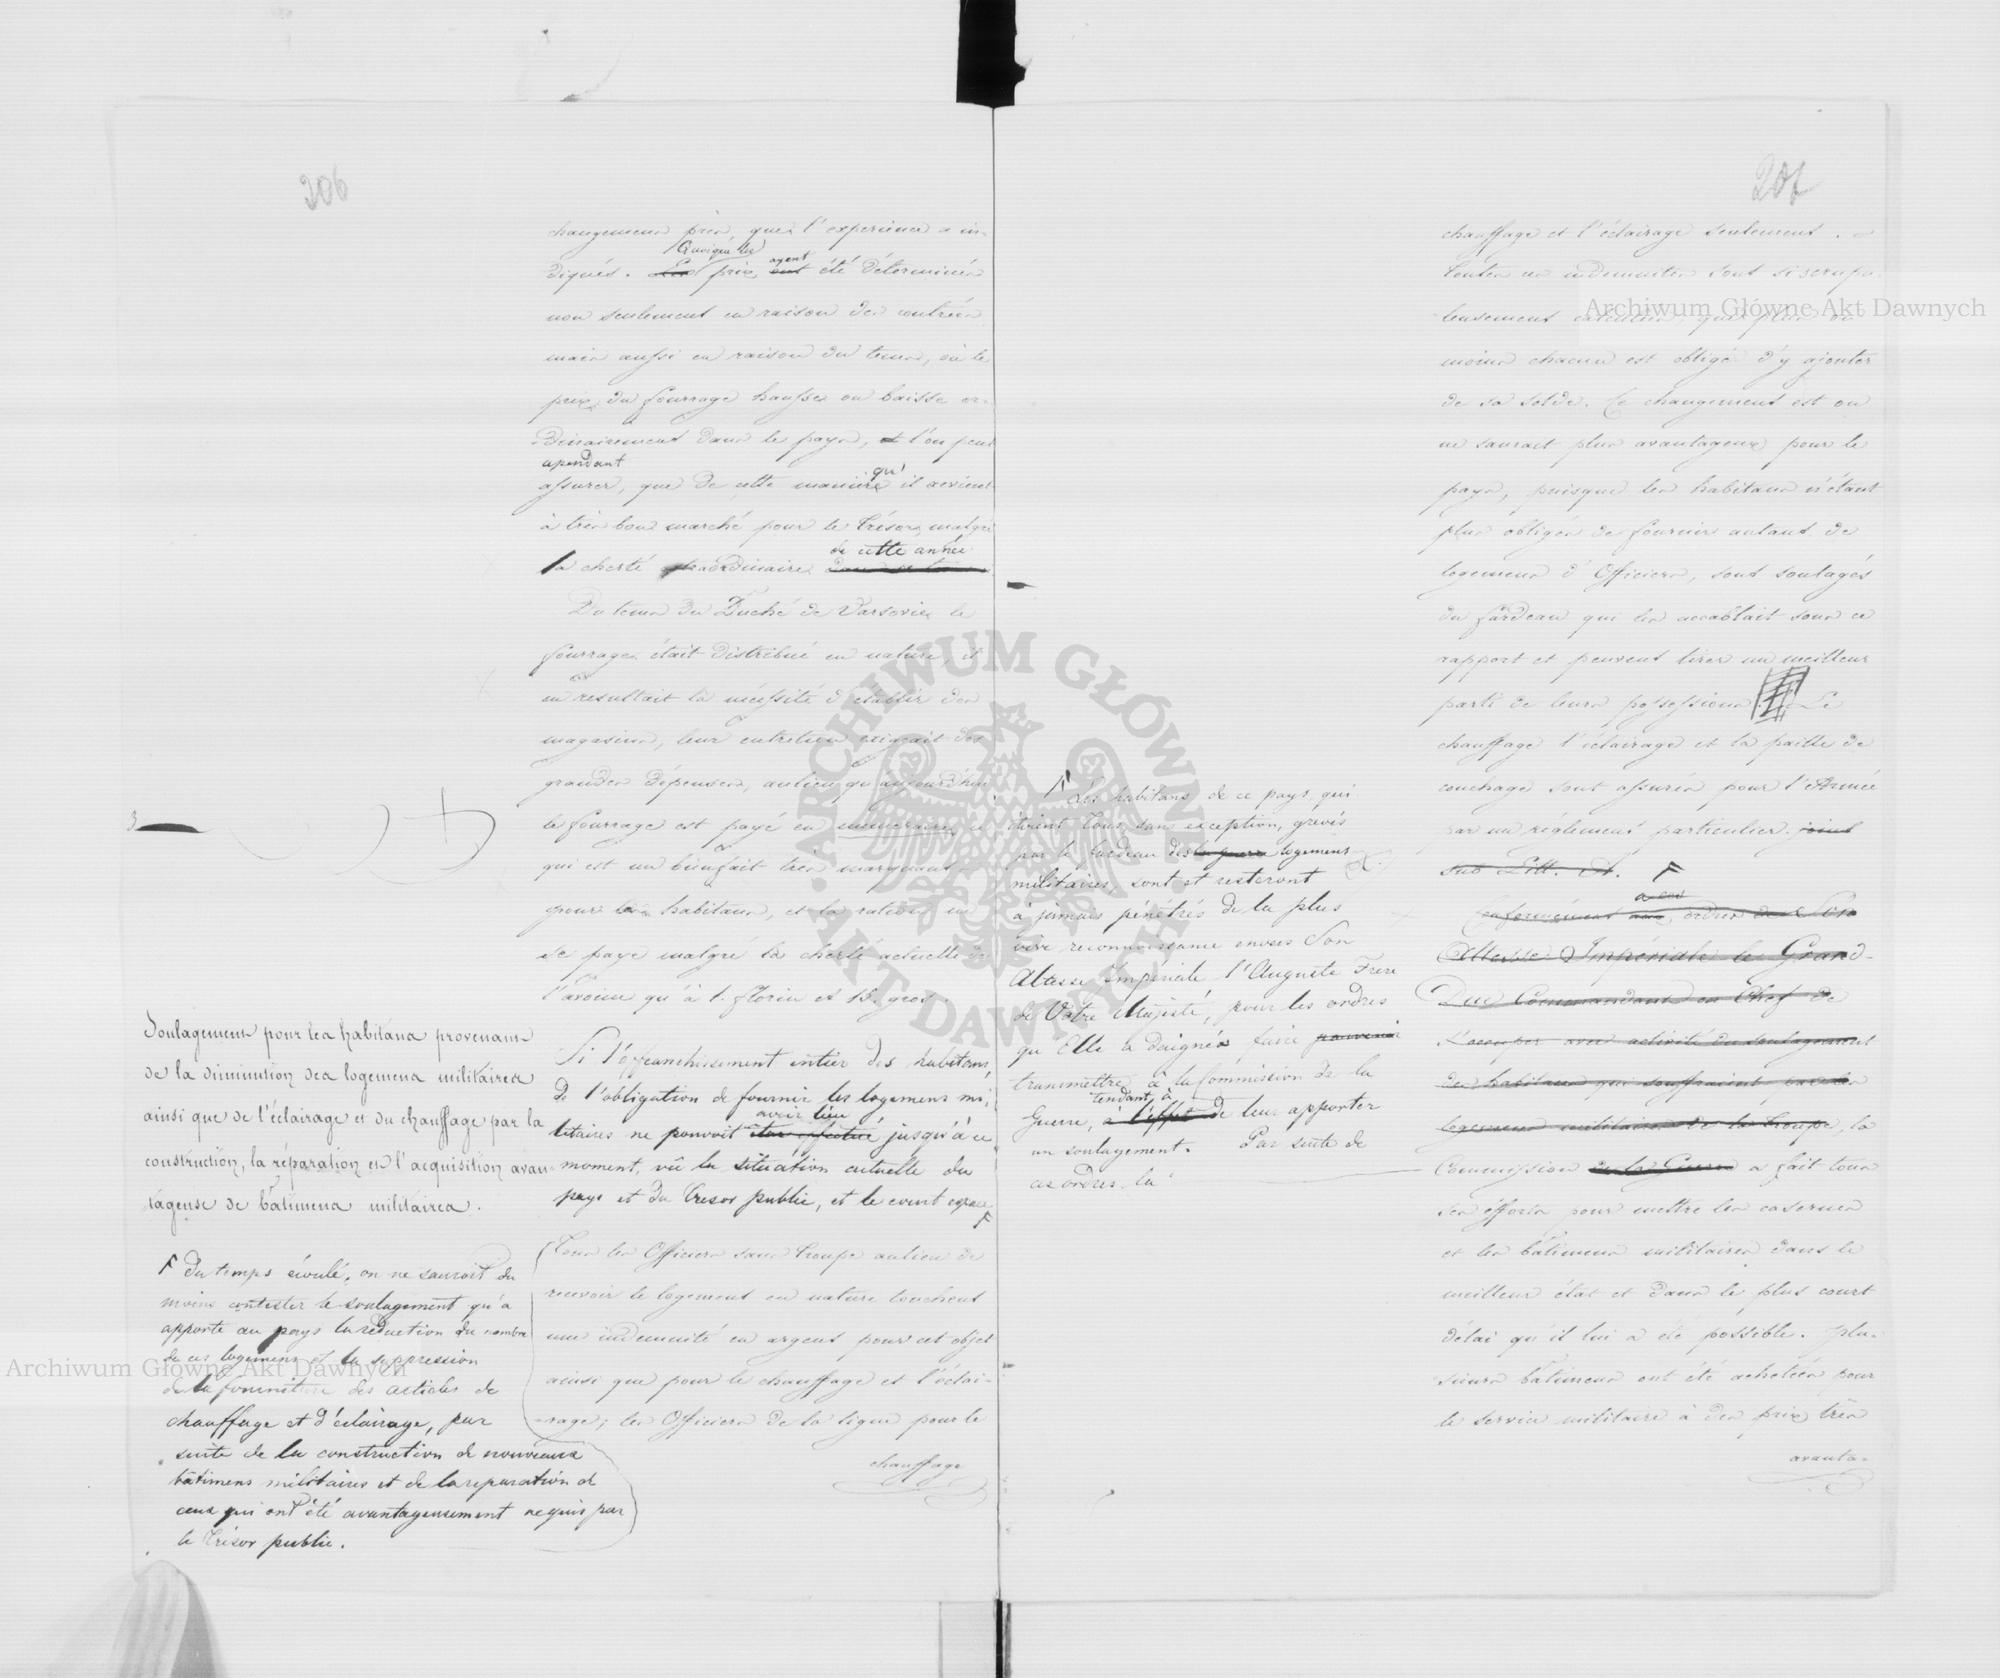 206
changemens près, que l'expérience a in-
diqués. Quoique les prix ayent été déterminés
non seulement en raison des contrées
mais aussi en raison du tems, où le
prix du fourrage hausse ou baisse or-
dinairement dans le pays, l'on peut
cependant
assurer, que de cette manière qu'il revient
à très bon marché pour le Trésor, malgré
la cherté extraordinaire de cette année
Du tems du Duché de Varsovie le
fourrage était distribué en nature, il
en resultait la nécessité d'établir des
magasins, leur entretien exigeait des
grandes dépenses, aulieu qu'aujourd'hui
le fourrage est payé en numeraire, ce
qui est un bienfait très marquant
pour les habitans, et la ration ne
se paye malgré la cherté actuelle de
l'avoine qu'à 1. florin et 15. gros.
3
Soulagemens pour les habitans provenans
de la diminution des logemens militaires
ainsi que de l'éclairage et du chauffage par la
construction, la réparation et l'acquisition avan-
tageuse de bâtimens militaires.
Si l'affranchissement entier des habitans,
de l'obligation de fournir les logemens mi-
litaires ne pouvoit avoir lieu jusqu'à ce
moment, vû la situation actuelle du
pays et du Tresor public, et le court espace
F
F du temps écoulé, on ne sauroit du
moins contester le soulagement qu'a
apporté au pays la réduction du nombre
de ces logemens et la suppression
de la fourniture des articles de
chauffage et d'éclairage, par
suite de la construction de nouveaux
bâtimens militaires et de la reparation de
ceux qui ont été avantageusement acquis par
le Trésor public.
Tous les Officiers sans troupe aulieu de
recevoir le logement en nature touchent
une indemnité en argent pour cet objet
ainsi que pour le chauffage et l'éclai-
rage; les Officiers de la ligne pour le
chauffage
207
chauffage et l'éclairage seulement.
Toutes ces indemnités sont si scrupu-
leusement calculées, que plus ou
moins chacun est obligé d'y ajouter
de sa solde. Ce changement est on
ne saurait plus avantageux pour le
pays, puisque les habitans n'étant
plus obligés de fournir autant de
logemens d'Officiers, sont soulagés
du fardeau qui les accablait sous ce
rapport et peuvent tirer un meilleur
parti de leurs possessions. Le
chauffage l'éclairage et la paille de
couchage sont assurés pour l'Armée
par un réglement particulier. joint
sub Litt. A. F
F Les habitans de ce pays, qui
étoient tous, sans exception, grevés
par le fardeau des logemens
militaires, sont et resteront
à jamais pénétrés de la plus
vive reconnoissance envers Son
Altesse Impériale l'Auguste Frere
de Votre Majesté, pour les ordres
qu'Elle a daignée faire parvenir
transmettre à la Commission de la
Guerre, tendant à à l'effet de leur apporter
un soulagement. Par suite de
ces ordres la
Conformément aux ordres de Son
Altesse Impériale le Grand-
Duc Commandant en Chef de
s'occuper avec activité du soulagement
des habitans qui souffraient par les
logemens militaires de la troupe, la
Commission de la Guerre a fait tous
ses efforts pour mettre les casernes
et les bâtimens militaires dans le
meilleur état et dans le plus court
délai qu'il lui a été possible. Plu-
sieurs bâtimens ont été achetés pour
le service militaire à des prix très
avanta-
Archiwum Główne Akt Dawnych
Archiwum Główne Akt Dawnych
ARCHIWUM GŁÓWNE AKT DAWNYCH